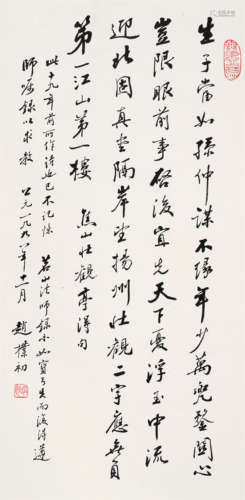 生子當如孫仲謀不緣年少萬兜鍪關心
豈限眼前事啓後宜先天下憂浮玉中流
迎北固真隔岸望揚州壯觀二字應無負
第一江山第一樓 焦山壯觀亭得句
此十九年前所作詩也已不記憶 茗山法師錄示如寶弓失而復得遵
師囑錄以求教 公元一九九八年十一月 趙樸初